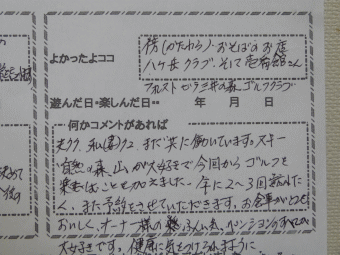 よかったよココ
傍(かたわら)、おそばのお店
ハケ岳クラブ、そして壱番館さん
フォレスト 三井の森、ゴルフクラブ
遊んだ日・楽しんだ日・・ 年 月 日
何かコメントがあれば
夫72、私(妻)72、まだ共に働いています。スキー
自然の森、山が大好きで今回からゴルフを
楽しむことを加えました。年に2〜3回訪れた
く、また予約をさせていただきます。お食事がとても
おいしく、オーナー様の ペンションのすべてが
大好きです。健康に気をつけられますように